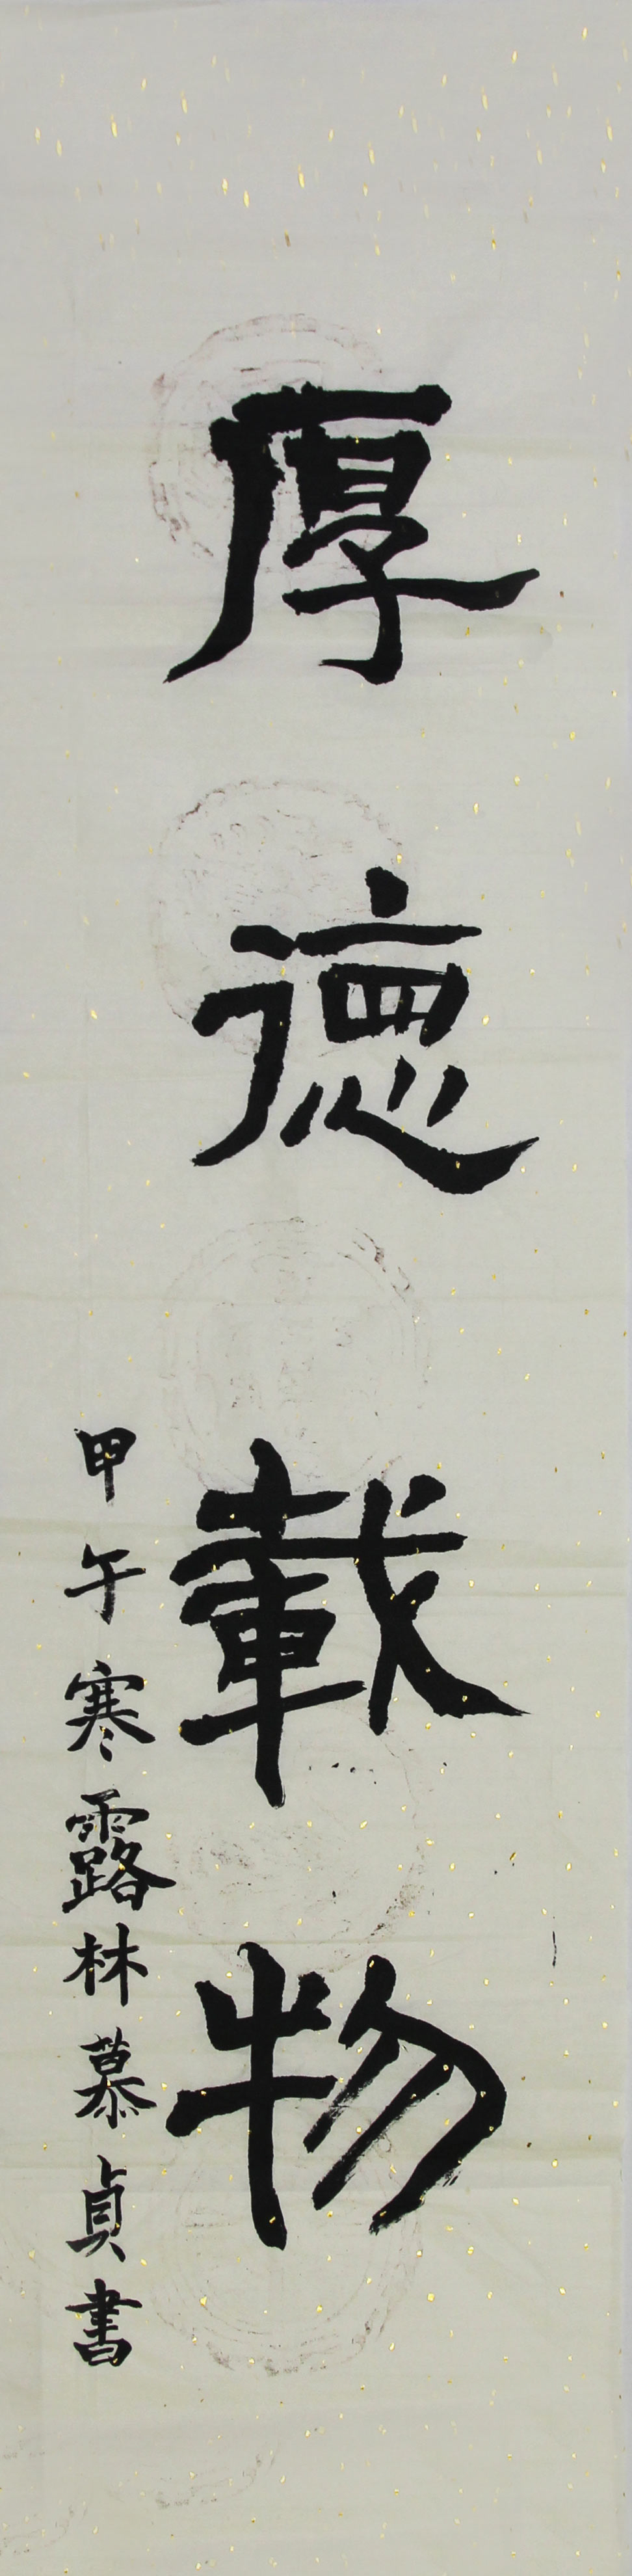 厚德載物
甲午寒露林慕貞書